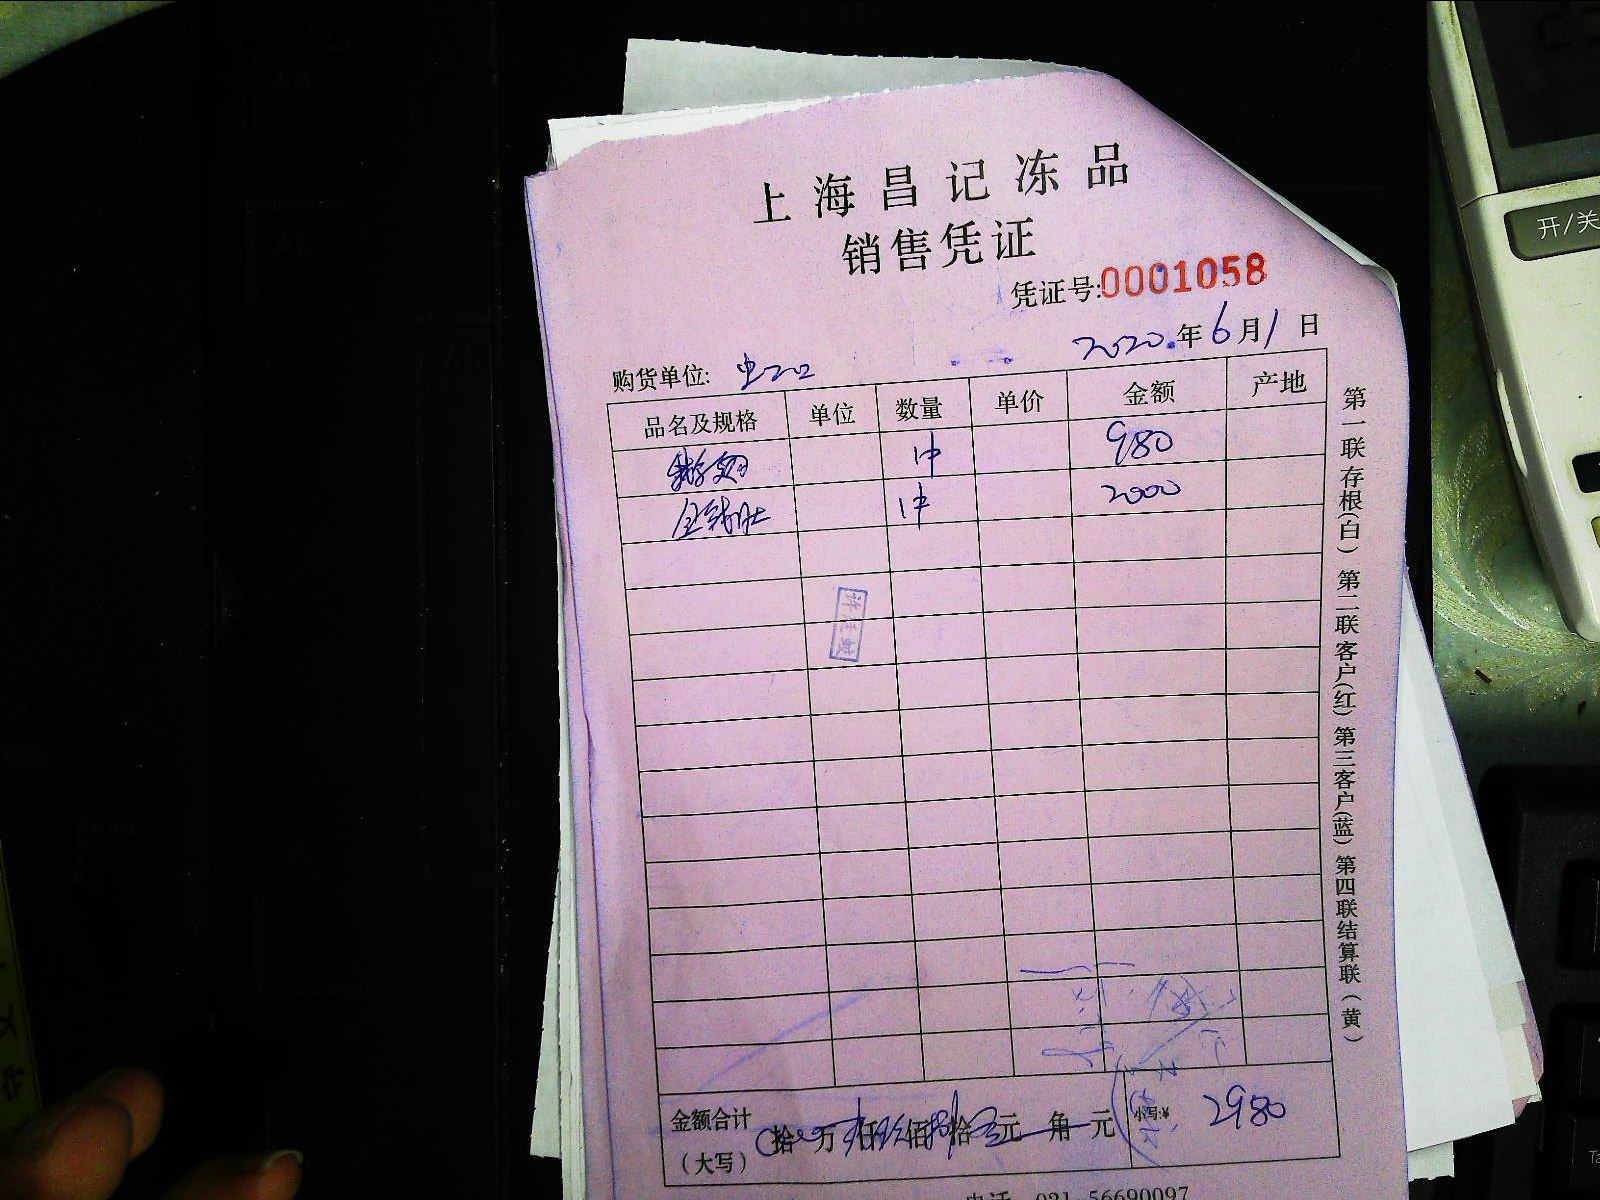 上海昌记冻品
销售凭证
凭证号:0001058
2020年6月1日
购货单位:
品名及规格 单位 数量 单价 金额 产地
1件 980
1件 2000
金额合计
(大写) 拾 万 仟 佰 拾 元 角 元 小写:¥ 2980
电话 021-56690097
第一联存根(白) 第二联客户(红) 第三客户(蓝) 第四联结算联(黄)
开/关